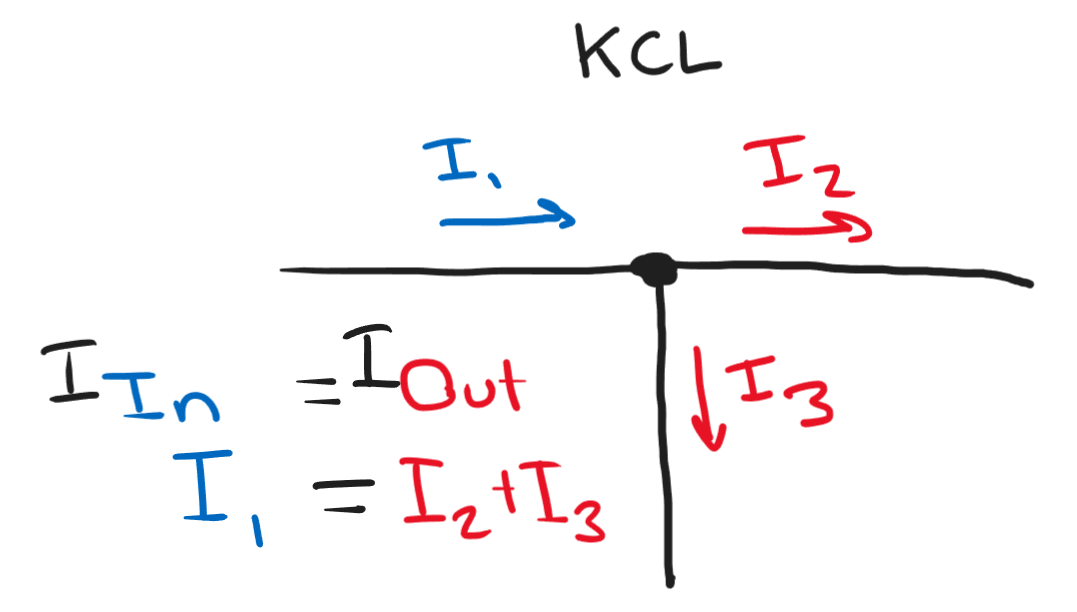 KCL
I₁
I₂
I₃
I In = I Out
I₁ = I₂ + I₃